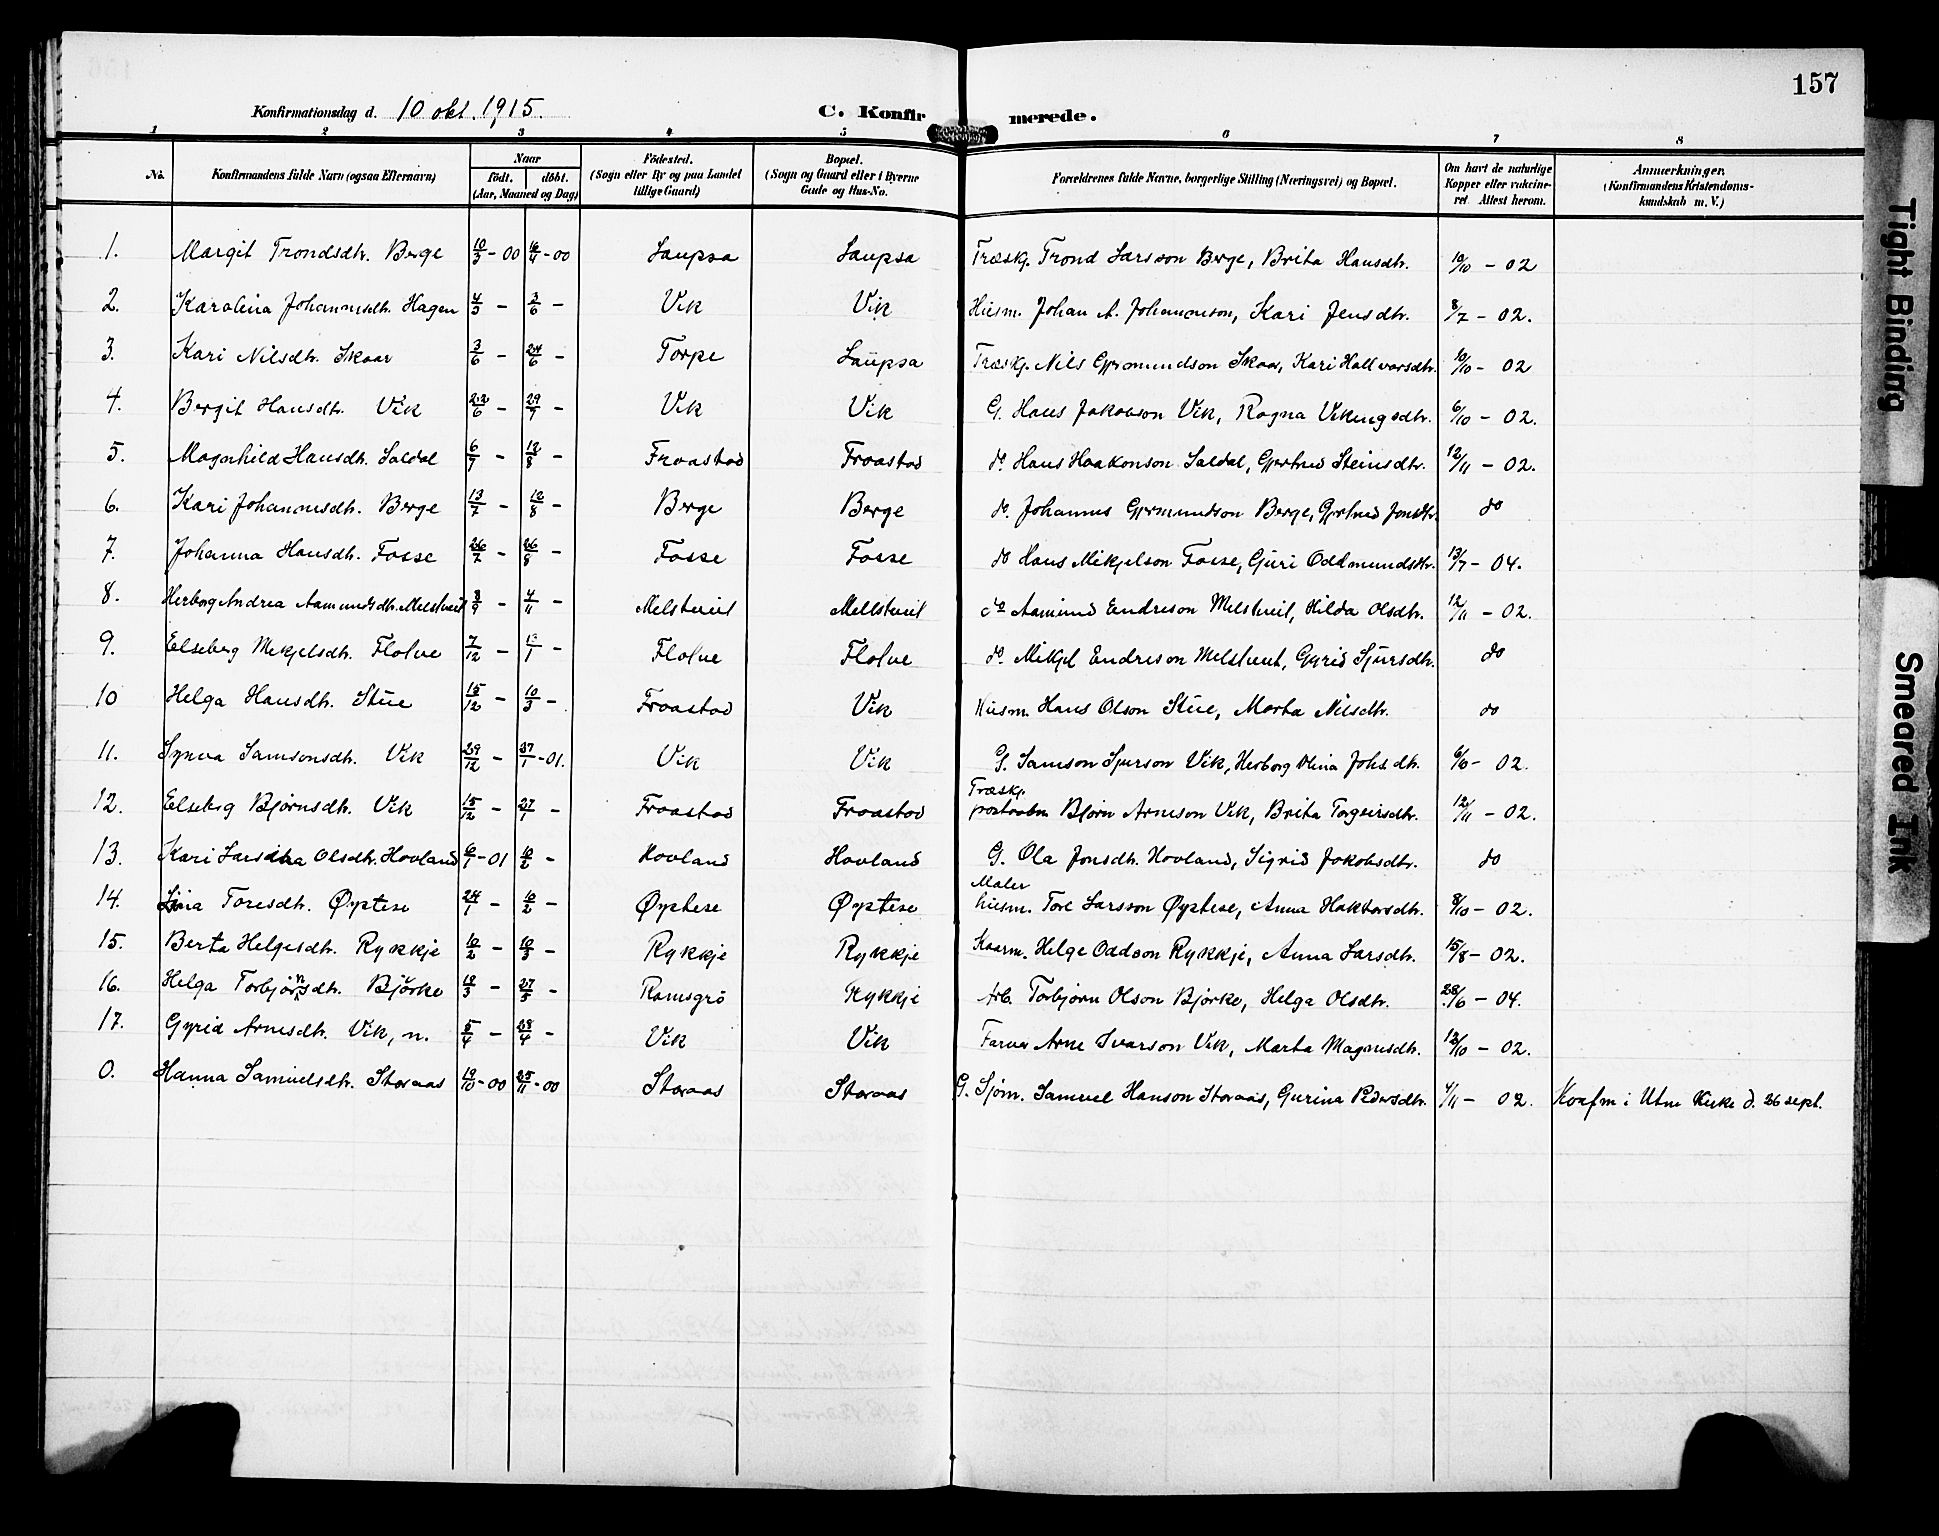 157
Konfirmationsdag d. 10 okt. 1915. C. Konfirmerede.
1 2 3 4 5 6 7 8
No. Konfirmandens fulde Navn (ogsaa Efternavn) Naar født. døbt. (Aar, Maaned og Dag) Fødested. (Sogn eller By og paa Landet tillige Gaard) Bopæl. (Sogn og Gaard eller i Byerne Gade og Hus-No. Forældrenes fulde Navne, borgerlige Stilling (Næringsvei) og Bopæl. Om havt de naturlige Kopper eller vakcineret. Attest herom. Anmærkninger. (Konfirmandens Kristendomskundskab m. V.)
1. Margit Trondsdtr. Berge 10/3 - 00 16/4 - 00 Laupsa Laupsa Træskj. Trond Larsson Berge, Brita Hansdtr. 10/10 - 02
2. Karolina Johannesdtr. Hagen 4/5 - 3/6 - Vik Vik Husm. Johan A. Johanneson, Kari Jensdtr. 8/7 - 02.
3. Kari Nilsdtr. Skaar 3/6 - 24/6 - Torpe Laupsa Træskj. Nils Gjermundson Skaar, Kari Hallvarsdtr. 10/10 - 02
4. Bergit Hansdtr. Vik 22/6 - 29/7 - Vik Vik G. Hans Jakobson Vik, Ragna Vikingsdtr. 6/10 - 02.
5. Magnhild Hansdtr. Saldal 6/7 - 12/8 - Fraastad Fraastad do. Hans Haakonson Saldal, Gjertrud Steinsdtr. 12/11 - 02.
6. Kari Johannesdtr. Berge 13/7 - 12/8 - Berge Berge do. Johannes Gjermundson Berge, Gjertrud Jonsdtr. do
7. Johanna Hansdtr. Fosse 26/7 - 26/8 - Fosse Fosse do Hans Mikjelson Fosse, Guri Oddmundsdtr. 13/7 - 04.
8. Herborg Andrea Aamundsdtr. Melstveit 8/9 - 4/11 - Melstveit Mellstveit do Aamund Endreson Melstveit, Hilda Olsdtr. 12/11 - 02.
9. Elseberg Mikjelsdtr. Flotve 7/12 - 13/1 - Flotve Flotve do. Mikjel Endreson Melstveit, Gyrid Sjursdtr. do
10 Helga Hansdtr. Stue 15/12 - 10/3 - Fraastad Vik Husm. Hans Olson Stue, Marta Nilsdtr. do
11. Synva Samsonsdtr. Vik 29/12 - 27/1 - 01. Vik Vik G. Samson Sjurson Vik, Herborg Olina Johs.dtr. 6/10 - 02.
12. Elseberg Bjørnsdtr. Vik 15/12 - 27/1 - Fraastad Fraastad Træskj. postaabn Bjørn Arneson Vik, Brita Torgeirsdtr. 12/11 - 02.
13. Kari Larsdina Olsdtr. Hovland 6/1 - 01 10/2 - Hovland Hovland G. Ola Jonsdtr. Hovland, Sigrid Jakobsdtr. do
14. Lina Toresdtr. Øystese 24/1 - 10/2 - Øystese Øystese Maler husm. Tore Larsson Øystese, Anna Haktorsdtr. 8/10 - 02.
15. Berta Helgesdtr. Rykkje 10/2 - 10/3 - Rykkje Rykkje Kaarm. Helge Oddson Rykkje, Anna Larsdtr. 15/8 - 02.
16. Helga Torbjørnsdtr. Bjørke 19/3 - 27/5 - Ramsgrø Rykkje Arb. Torbjørn Olson Bjørke, Helga Olsdtr. 28/6 - 04.
17. Gyrid Arnesdtr. Vik, n. 5/4 - 28/4 - Vik Vik Farver Arne Ivarson Vik, Marta Magnesdtr. 12/10 - 02.
0. Hanna Samuelsdtr. Storaas 19/10 - 00 25/11 - 00 Storaas Storaas G. Sjøm. Samuel Hanson Storaas, Gurina Pedersdtr. 4/11 - 02. Konfm i Utne Kirke d. 26 sept.
Tight Binding
Smeared Ink